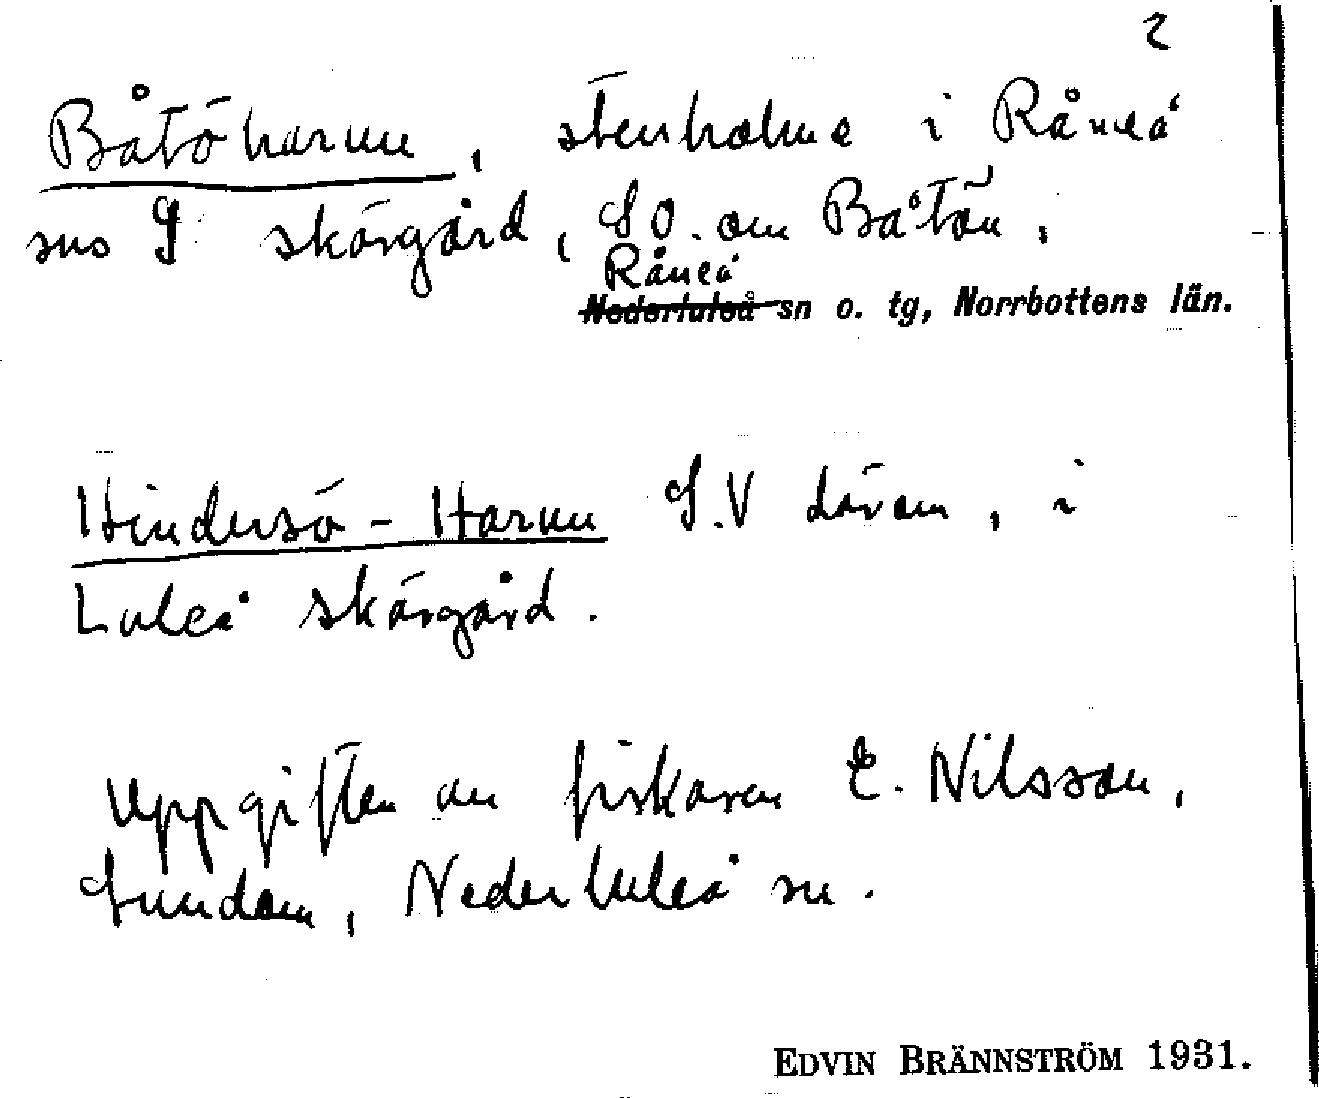 2
Båtöharun, stenholme i Råneå
sns S skärgård, SO. om Båtön.
Råneå
Nederluleå sn o. tg, Norrbottens län.
Hindersö-Harun S.V därom, i
Luleå skärgård.
Uppgiften av fiskaren E. Nilsson,
Sundom, Nederluleå sn.
EDVIN BRÄNNSTRÖM 1931.